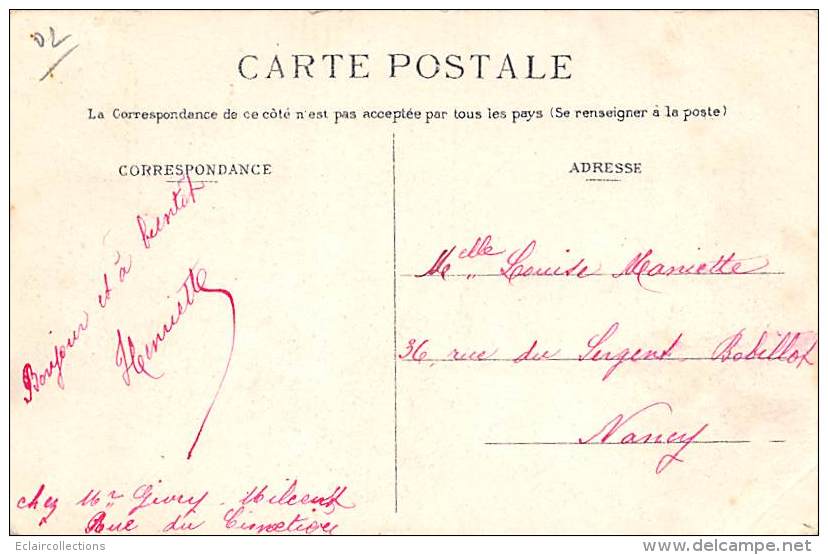 02
CARTE POSTALE
La Correspondance de ce côté n'est pas acceptée par tous les pays (Se renseigner à la poste)
CORRESPONDANCE
Bonjour et à bientôt
Henriette
chez Mr Givry
Rue du Cimetière
ADRESSE
Melle Louise Mariette
36, rue du Sergent Bobillot
Nancy
Eclaircollections
delcampe.net